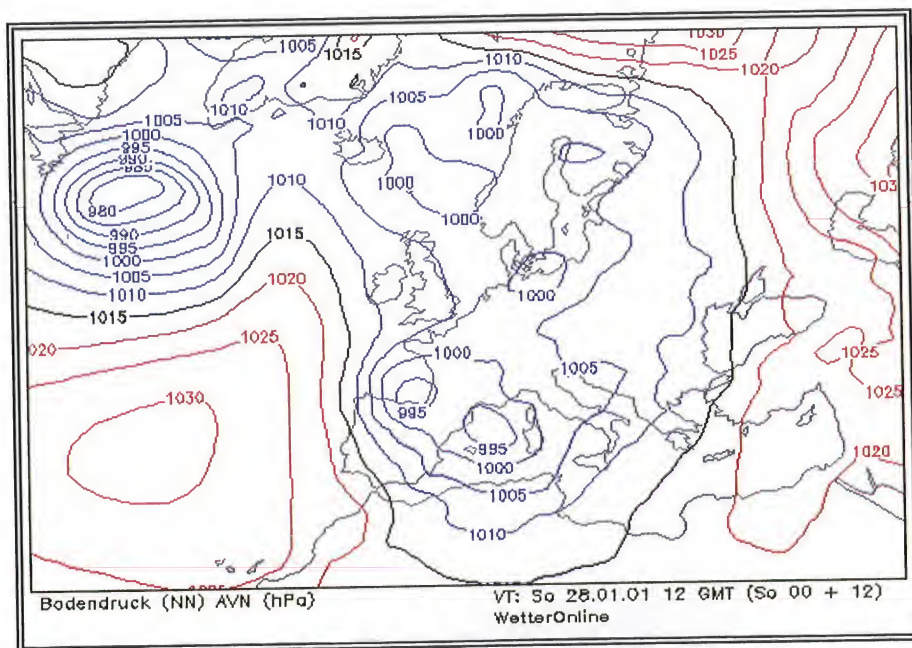 1005
1015
1030
1025
1020
1010
1005
1010
1010
1000
1005
1000
995
990
985
980
990
995
1000
1005
1010
1015
1010
1015
1020
1025
1030
1000
1000
1000
1000
995
1005
995
1000
1005
1010
1025
1025
1020
Bodendruck (NN) AVN (hPa)
VT: So 28.01.01 12 GMT (So 00 + 12)
WetterOnline